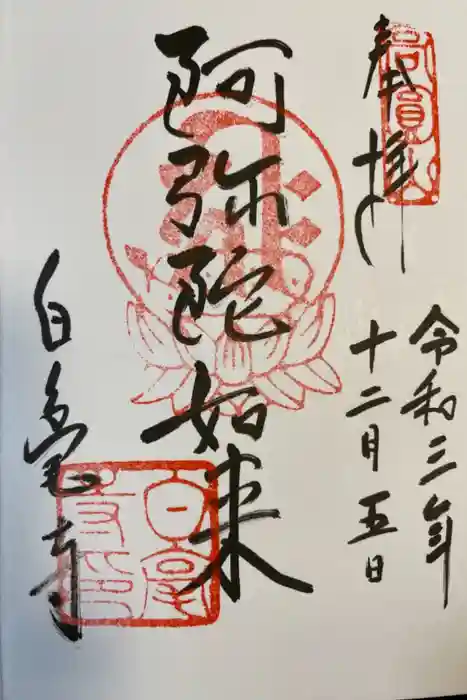 奉拝
高圓山
令和三年
十二月五日
阿弥陀如来
白毫寺
白毫
寺印